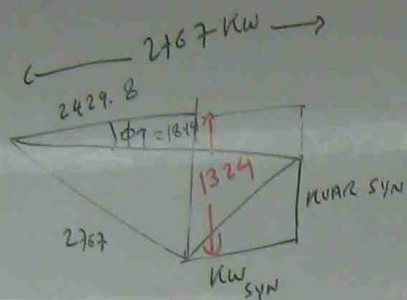 2767 KW
2429.8
φT = 18.19
1324
KVAR SYN
2767
KW SYN